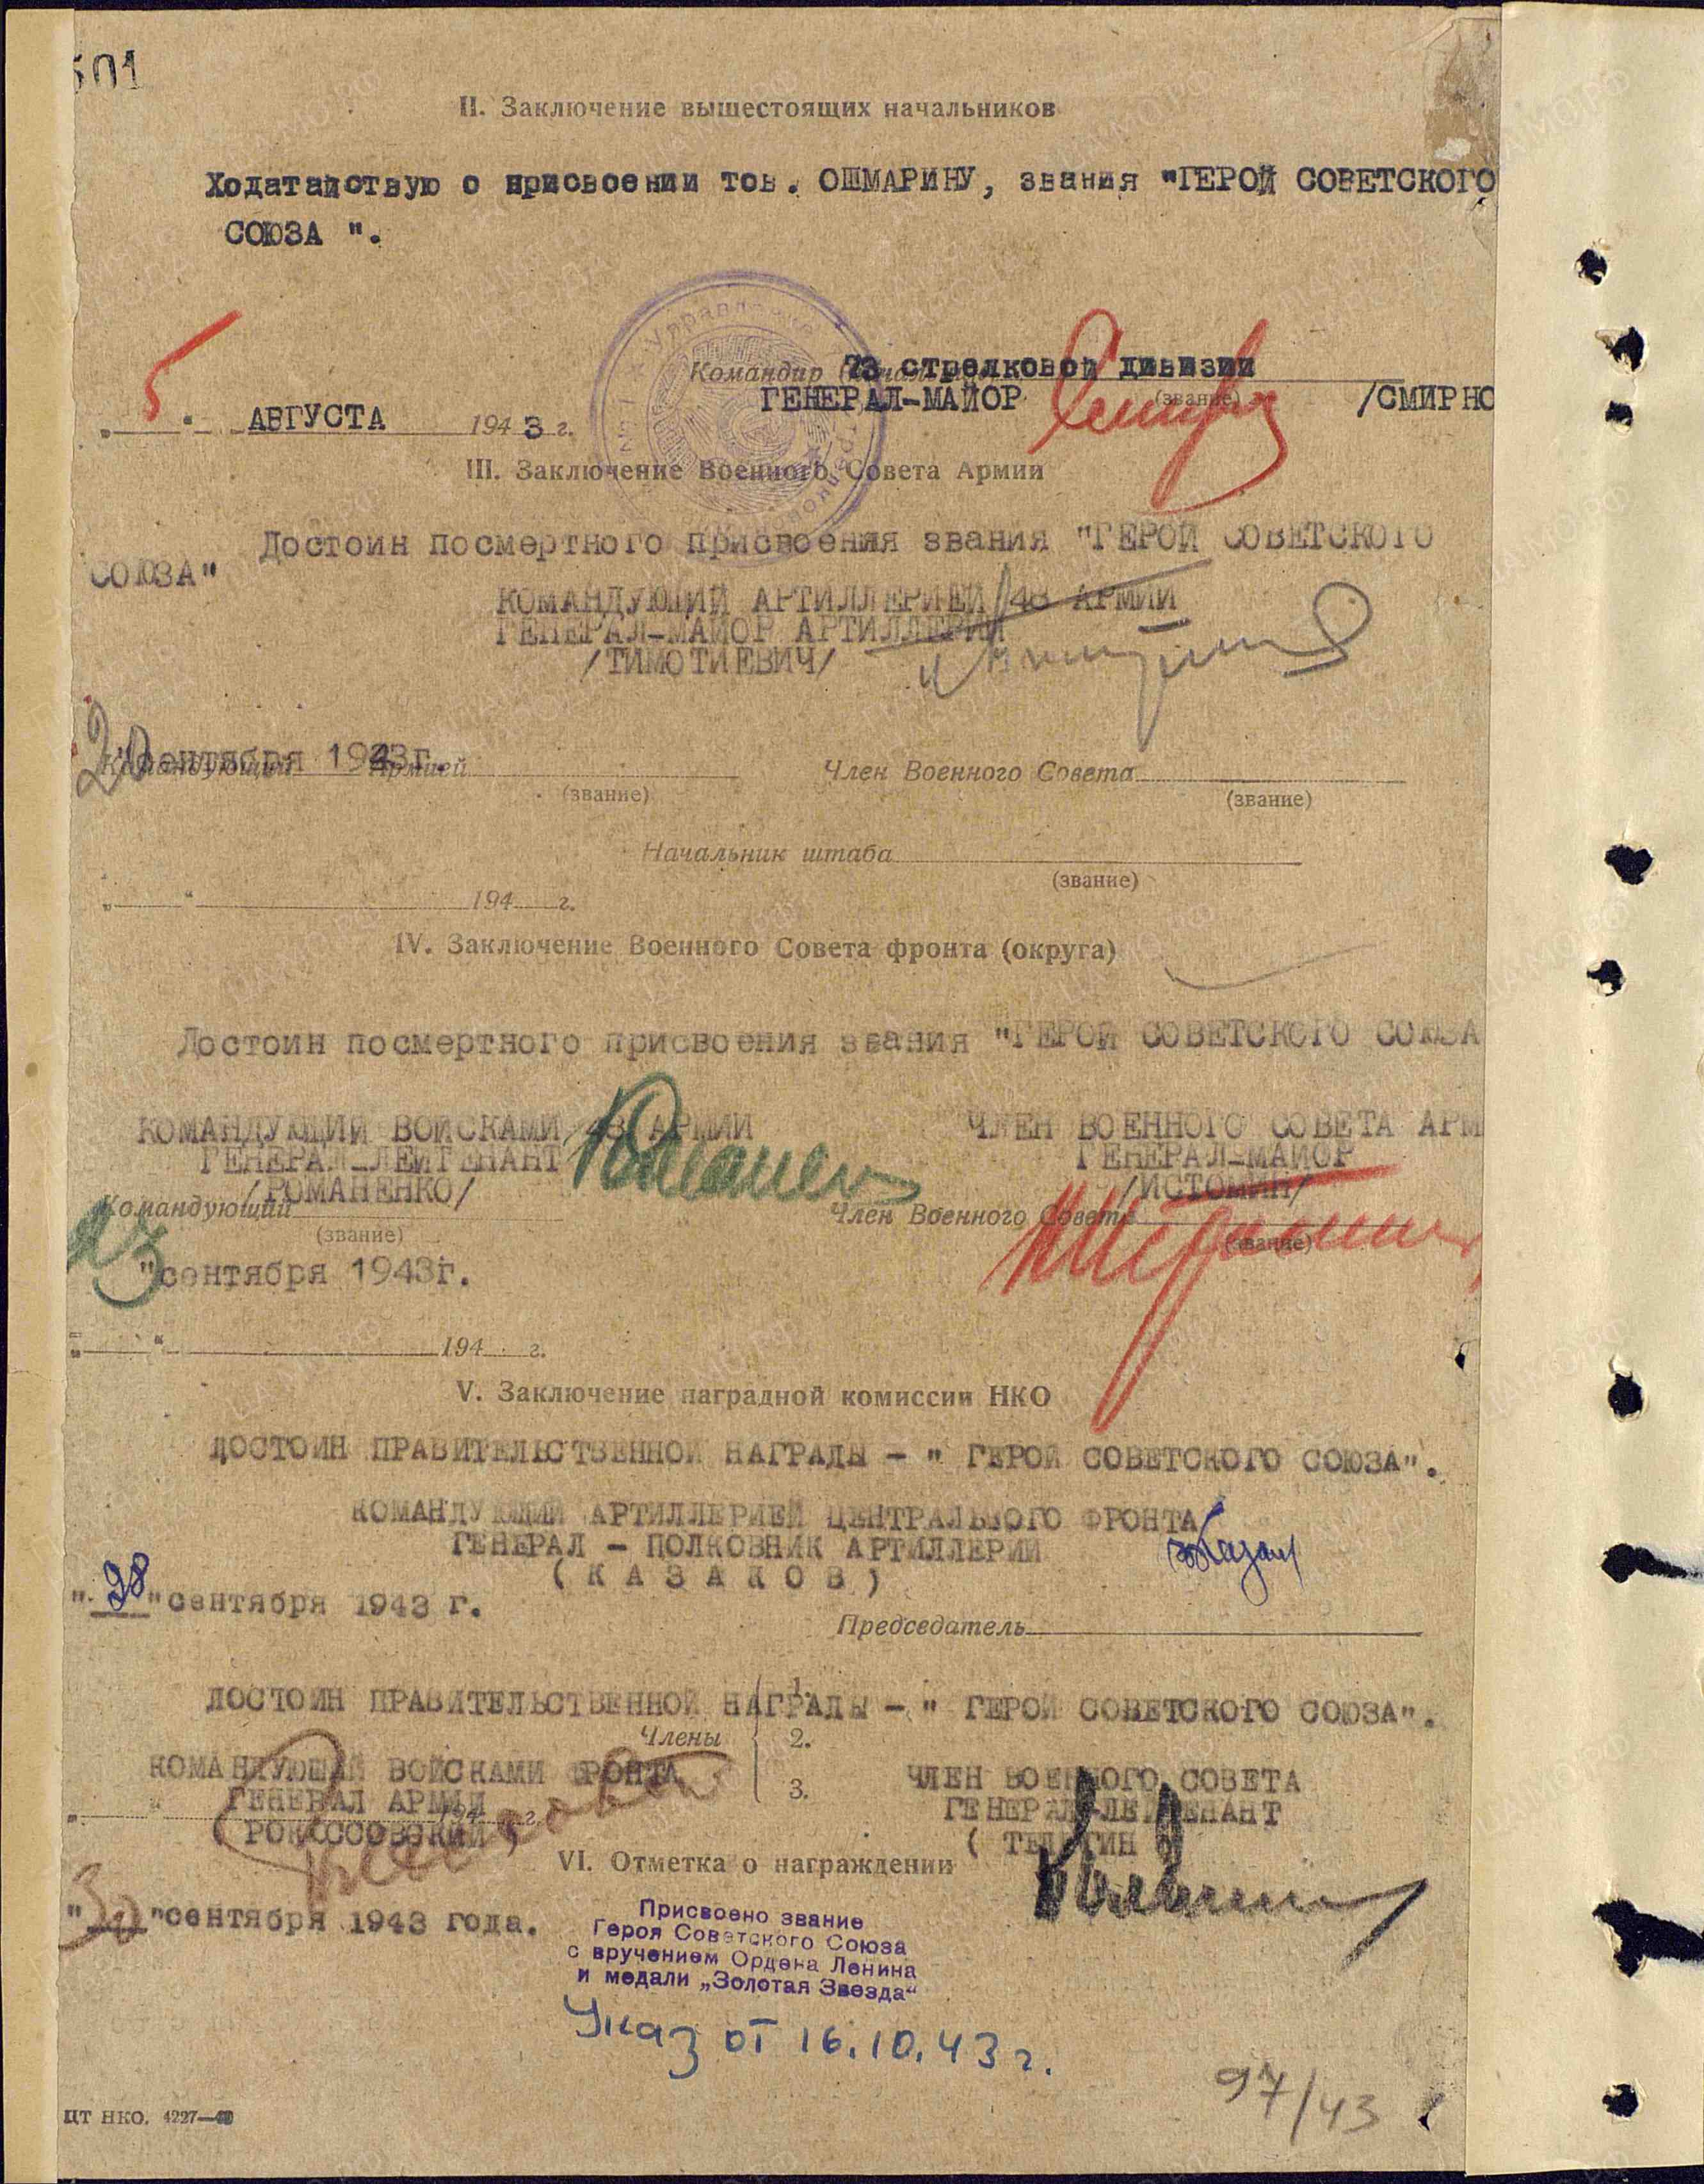 501
II. Заключение вышестоящих начальников
Ходатайствую о присвоении тов. ОШМАРИНУ, звания "ГЕРОЙ СОВЕТСКОГО
СОЮЗА ".
Командир 73 стрелковой дивизии
ГЕНЕРАЛ-МАЙОР (звание) /СМИРНО
„5“ АВГУСТА 1943 г.
III. Заключение Военного Совета Армии
Достоин посмертного присвоения звания "ГЕРОЙ СОВЕТСКОГО
СОЮЗА"
КОМАНДУЮЩИЙ АРТИЛЛЕРИЕЙ 48 АРМИИ
ГЕНЕРАЛ-МАЙОР АРТИЛЛЕРИИ
/ТИМОТИЕВИЧ/
20 сентября 1943г.
Командующий Армией Член Военного Совета
(звание) (звание)
Начальник штаба
(звание)
„ “ 194 г.
IV. Заключение Военного Совета фронта (округа)
Достоин посмертного присвоения звания "ГЕРОЙ СОВЕТСКОГО СОЮЗА
КОМАНДУЮЩИЙ ВОЙСКАМИ 48 АРМИИ ЧЛЕН ВОЕННОГО СОВЕТА АРМ
ГЕНЕРАЛ-ЛЕЙТЕНАНТ ГЕНЕРАЛ-МАЙОР
/РОМАНЕНКО/ /ИСТОМИН/
Командующий Член Военного Совета
(звание) (звание)
23 "сентября 1943г.
„ “ 194 г.
V. Заключение наградной комиссии НКО
ДОСТОИН ПРАВИТЕЛЬСТВЕННОЙ НАГРАДЫ - " ГЕРОЙ СОВЕТСКОГО СОЮЗА".
КОМАНДУЮЩИЙ АРТИЛЛЕРИЕЙ ЦЕНТРАЛЬНОГО ФРОНТА
ГЕНЕРАЛ - ПОЛКОВНИК АРТИЛЛЕРИИ
( К А З А К О В )
"28" сентября 1943 г.
Председатель
ДОСТОИН ПРАВИТЕЛЬСТВЕННОЙ НАГРАДЫ - " ГЕРОЙ СОВЕТСКОГО СОЮЗА".
1.
Члены 2.
3.
КОМАНДУЮЩИЙ ВОЙСКАМИ ФРОНТА ЧЛЕН ВОЕННОГО СОВЕТА
ГЕНЕРАЛ АРМИИ ГЕНЕРАЛ-ЛЕЙТЕНАНТ
„ “ 194 г.
( РОКОССОВСКИЙ ) ( ТЕЛЕГИН )
VI. Отметка о награждении
"30" сентября 1943 года.
Присвоено звание
Героя Советского Союза
с вручением Ордена Ленина
и медали „Золотая Звезда“
Указ от 16.10.43 г.
97/43
ЦТ НКО. 4227—